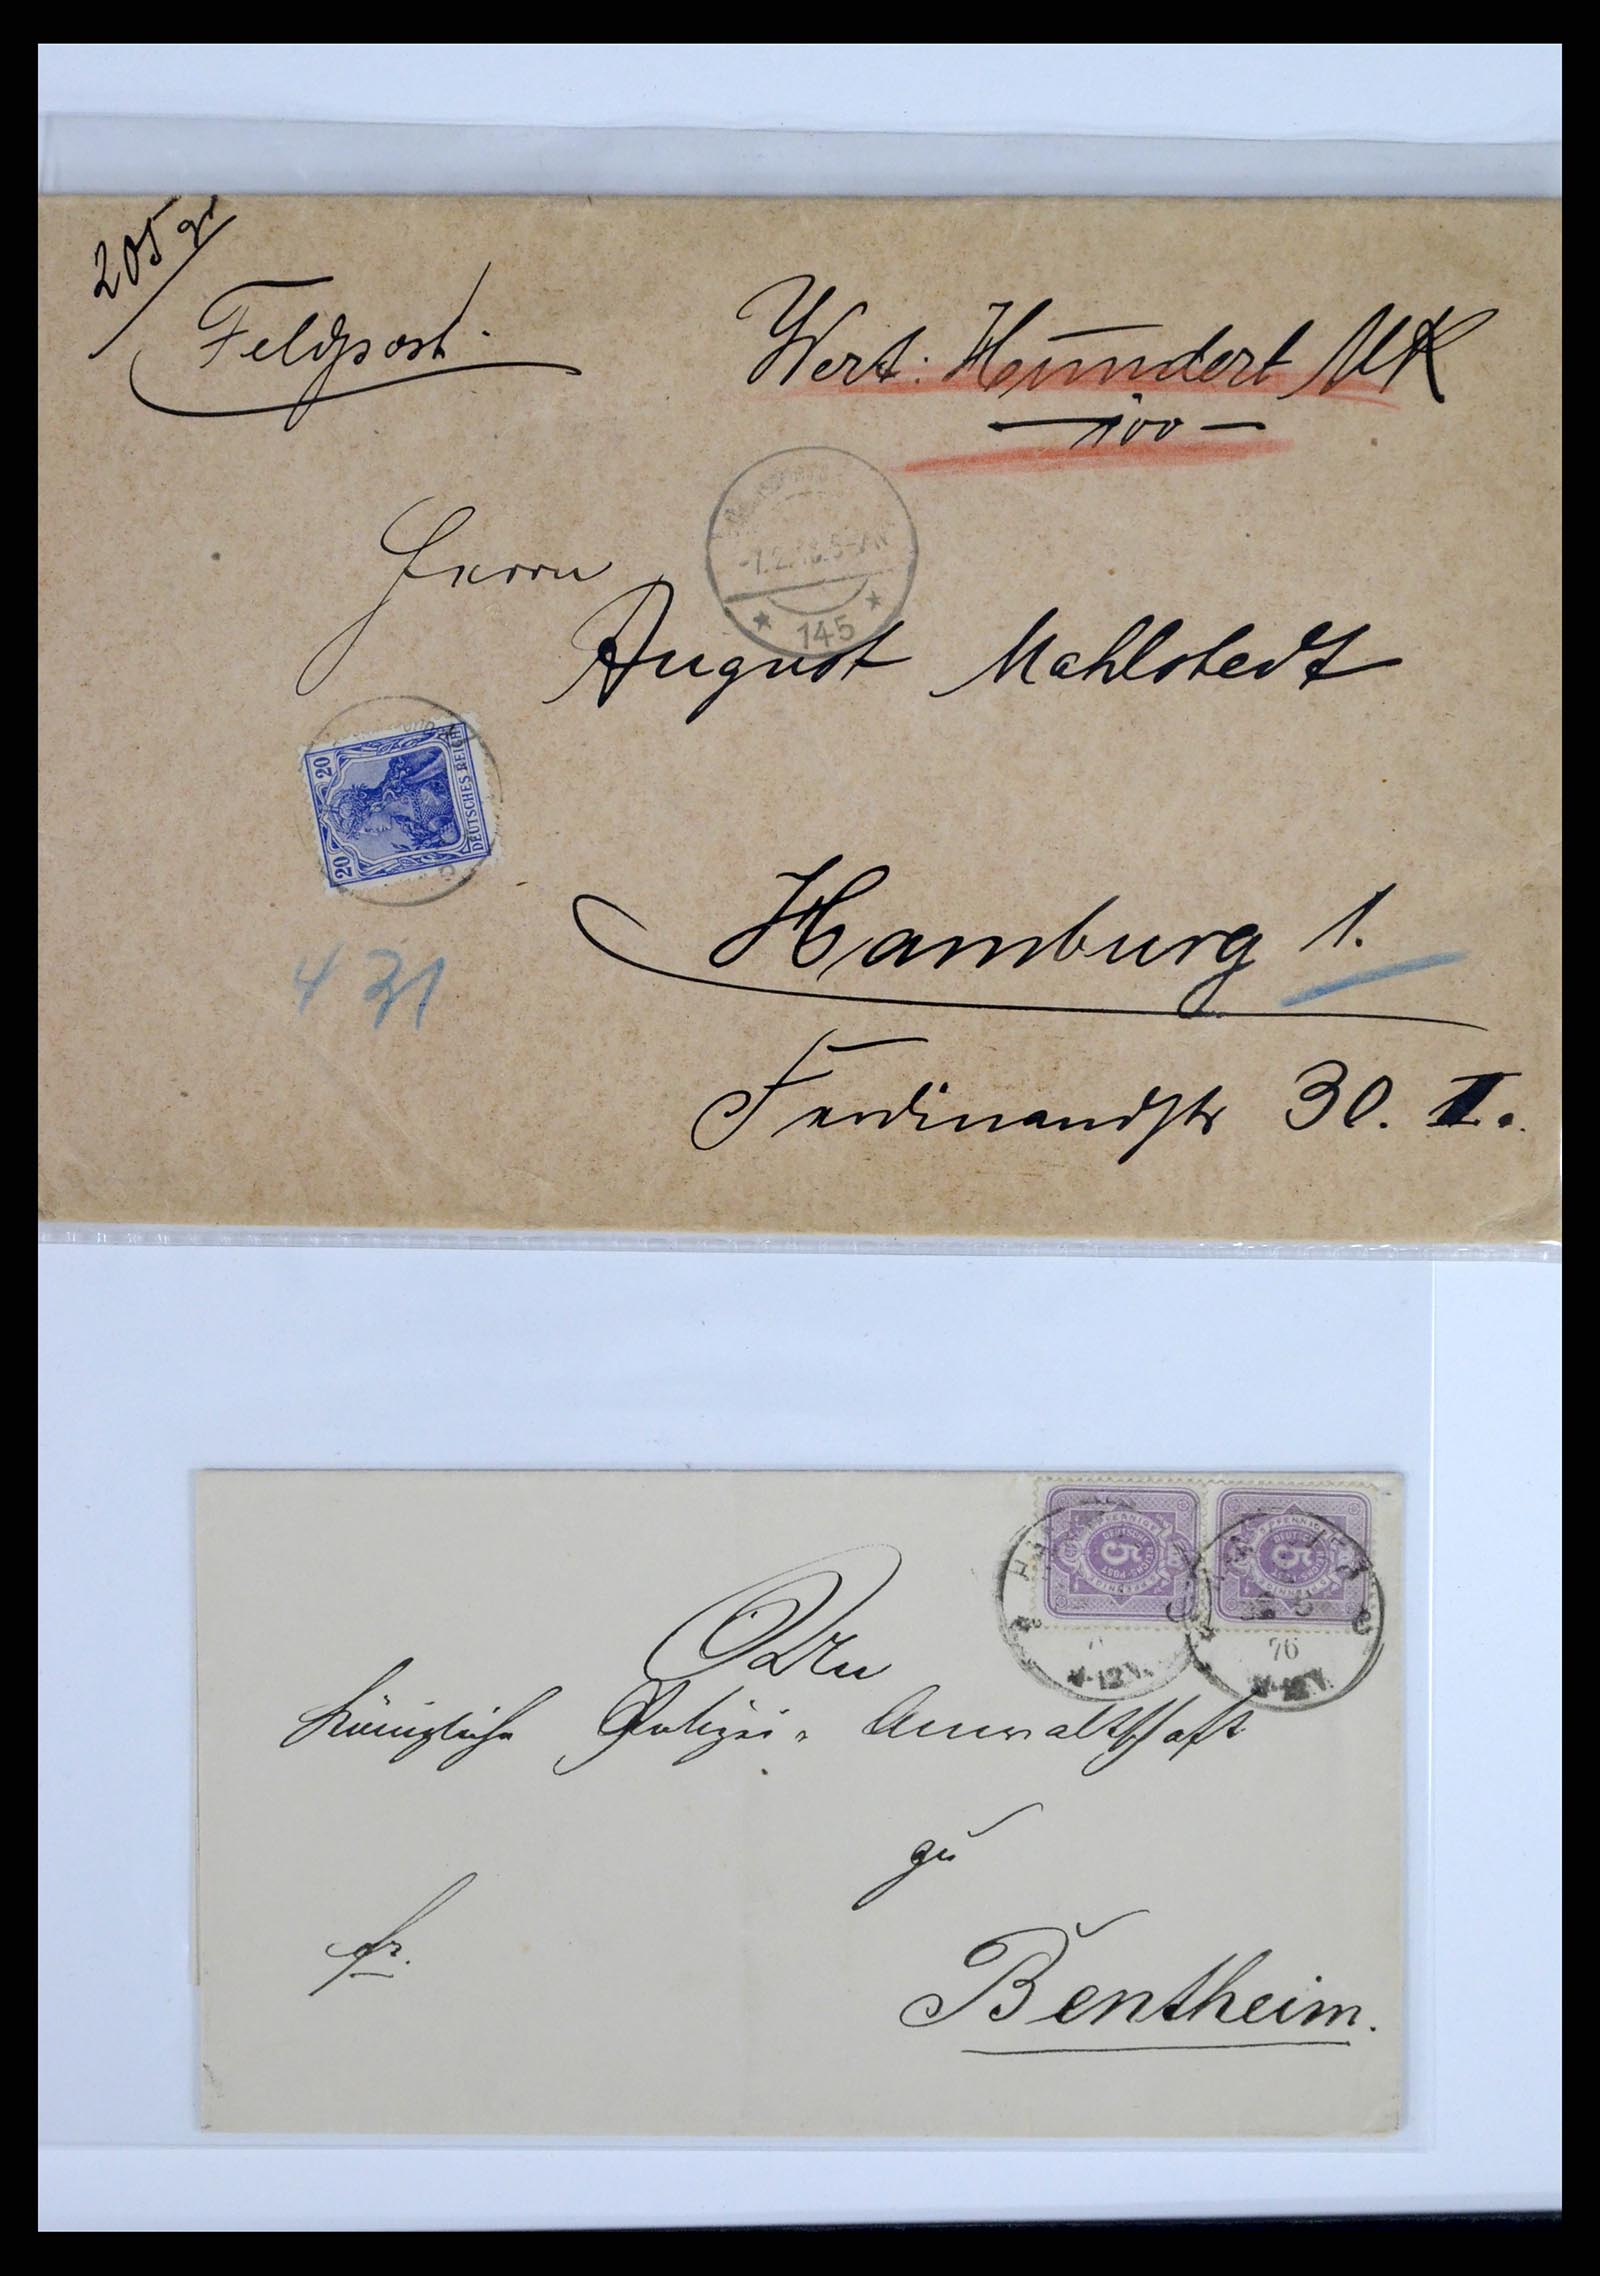 205 gr
Feldpost.
Wert: Hundert MK
— 100 —
-7.2.16.5-6N
* 145 *
Herrn
August Mahlstedt
20 20
DEUTSCHES REICH
431
Hamburg 1.
Ferdinandstr 30. II.
5 PFENNIGE
DEUTSCHE REICHS-POST
5
5 PFENNIGE
5 PFENNIGE
DEUTSCHE REICHS-POST
5
5 PFENNIGE
76
11-12V.
11-12V.
Königliche Polizei-Anwaltschaft
zu
fr.
Bentheim.